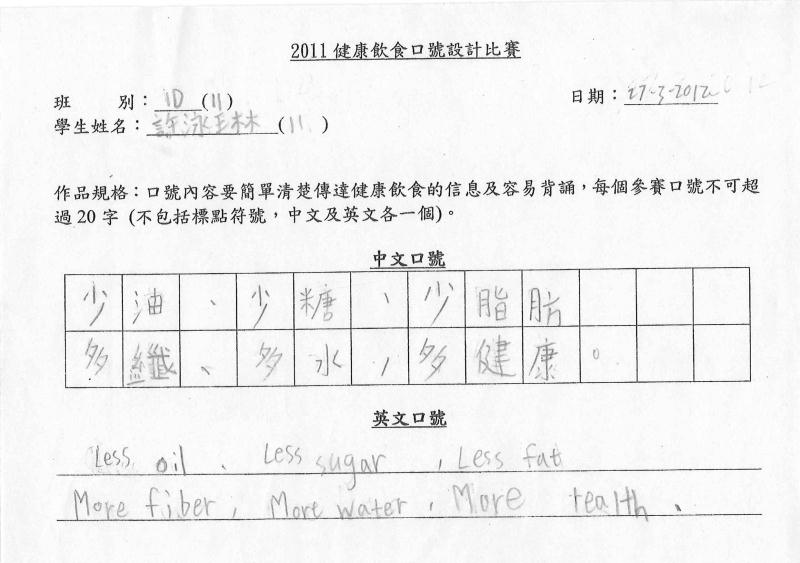 2011健康飲食口號設計比賽
班 別：1D (11) 日期：27-3-2012
學生姓名：許泳琳 (11)
作品規格：口號內容要簡單清楚傳達健康飲食的信息及容易背誦，每個參賽口號不可超
過20字 (不包括標點符號，中文及英文各一個)。
中文口號
少油、少糖、少脂肪
多纖、多水，多健康。
英文口號
Less oil 、 Less sugar , Less fat
More fiber , More water , More realth 、